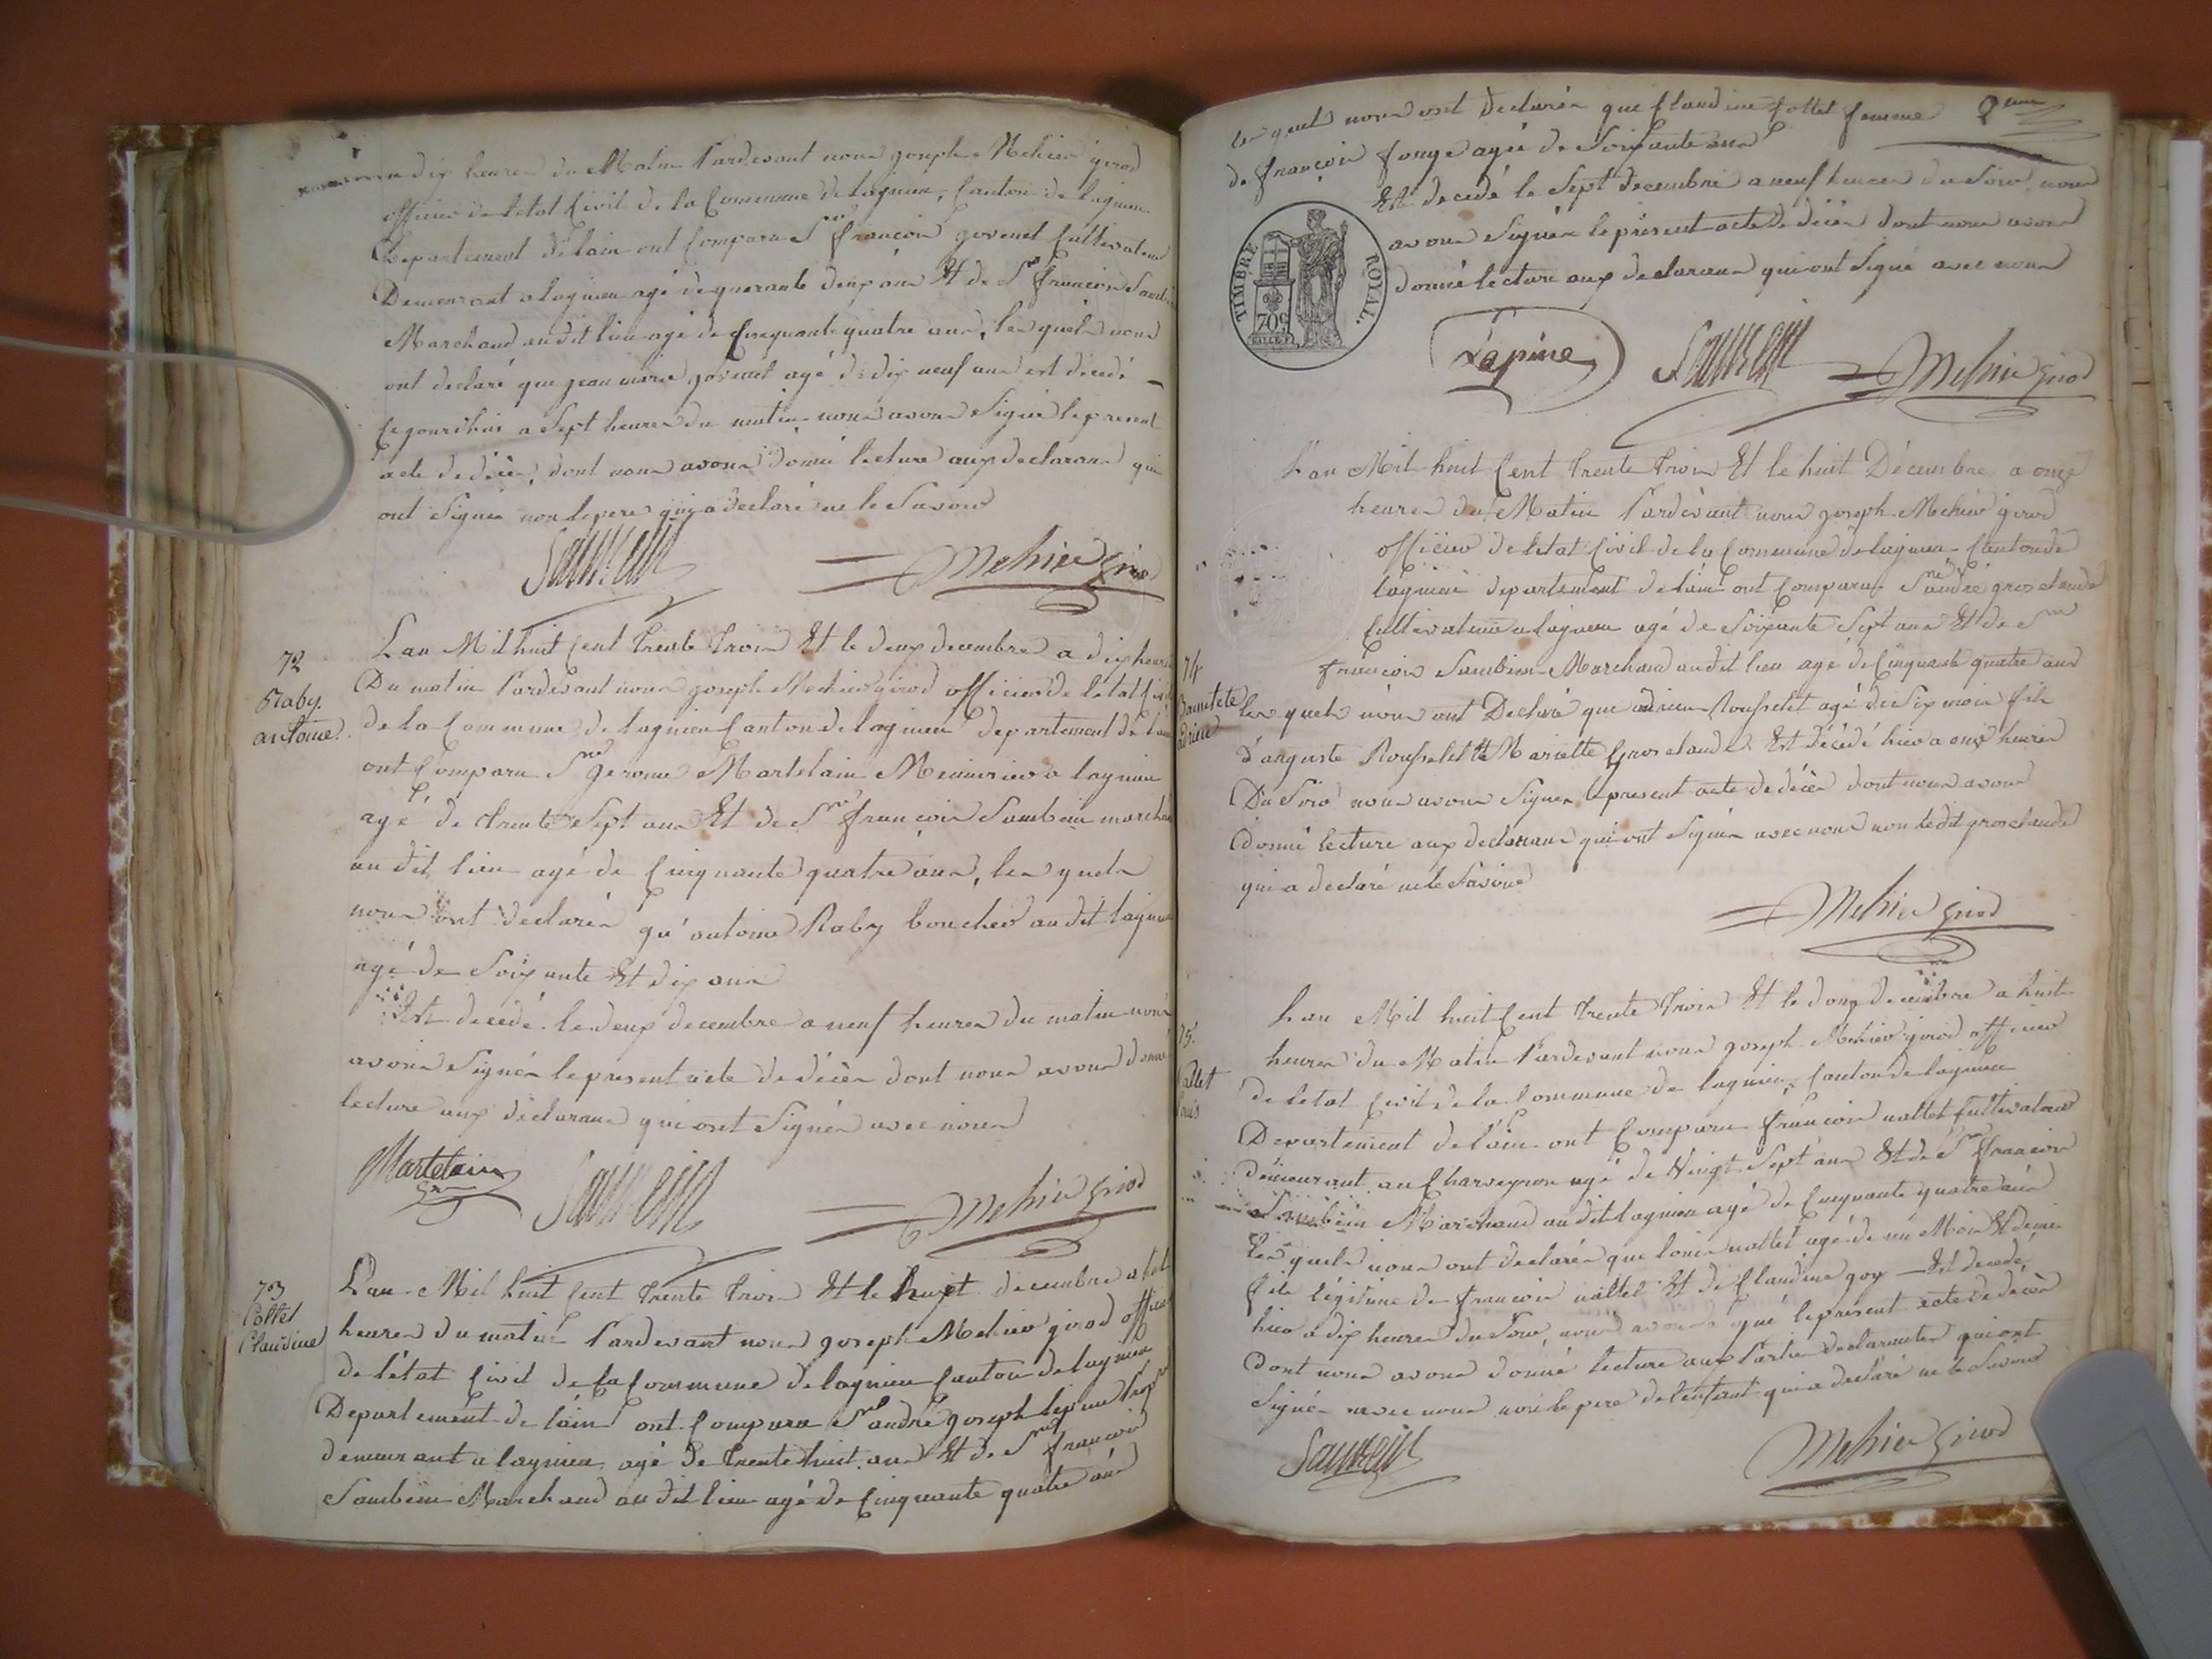 a dix heures du Matin Pardevant nous joseph Mehier girod
officier de letat Civil de la Commune de lagnieu, Canton de lagnieu
Departement de lain ont Comparu Sr françois govenet Cultivateur
Demeurant a lagnieu agé de quarante deux ans Et de Sr françois
Marchand au dit lieu agé de Cinquante quatre ans, les quels nous
ont declaré que jean marie govenet agé de dix neuf ans est décédé
Cejourdhui a Sept heures du matin nous avons Signé le present
acte de décès, dont nous avons donné lecture aux declarans qui
ont Signés non le pere qui a declaré ne le Savoir
Mehier Girod
72
Raby.
antoine.
Lan Mil huit Cent trente trois Et le deux decembre a dix heures
Du matin Pardevant nous joseph Mehier girod officier de letat
de la Commune de lagnieu Canton de lagnieu departement de
ont Comparu Sr gerome Martelain Menuisier a lagnieu
agé de trente Sept ans Et de Sr françois Sambein
au dit lieu agé de Cinquante quatre ans, les quels
nous ont declarés qu'antoine Raby boucher au dit lagnieu
agé de Soixante Et dix ans
Est decedé le deux decembre a neuf heures du matin nous
avons Signés le present acte de décès dont nous avons donné
lecture aux déclarans qui ont Signés avec nous
Martelain
Mehier Girod
73
Collet
Claudine
L'an Mil huit Cent trente trois Et le huit decembre a
heures du matin Pardevant nous joseph Mehier girod officier
de l'état Civil de la Commune de lagnieu Canton de lagnieu
Departement de lain ont Comparu Sr andré joseph lepine
demeurant a lagnieu agé de trente huit ans Et de Sr françois
Sambein Marchand au dit lieu agé de Cinquante quatre ans
les quels nous ont declarés que Claudine Collet femme
de françois fonge agée de Soixante ans
Est decedé le Sept decembre a neuf heures du Soir nous
avons Signés le présent acte de décès dont nous avons
donné lecture aux declarans qui ont Signé avec nous
TIMBRE ROYAL.
70c
Lapine
Mehier Girod
L'an Mil huit Cent trente trois Et le huit Décembre a onze
heures du Matin Pardevant nous joseph Mehier girod
officier de letat Civil de la Commune de lagnieu Canton de
lagnieu departement de lain ont Comparus Sr andré gros claude
Cultivateur a lagnieu agé de Soixante Sept ans Et de Sr
françois Sambein Marchand au dit lieu agé de Cinquante quatre ans
74
les quels nous ont Declaré que adrien Rousselet agé de Six mois fils
d'auguste Rousselet Et Mariette Gros claude Est décédé hier a onze heures
Du Soir nous avons Signés le present acte de décès dont nous avons
Donné lecture aux declarans qui ont Signés avec nous non le dit gros claude
qui a declaré ne le Savoir
Mehier Girod
75.
Vallet
Louis
Lan Mil huit Cent trente trois Et le douze decembre a huit
heures du Matin Pardevant nous joseph Mehier girod officier
de letat Civil de la Commune de lagnieu, Canton de lagnieu
Departement de lain ont Comparu françois vallet Cultivateur
demeurant au Charveyron agé de Vingt Sept ans Et de Sr françois
Sambein Marchand au dit lagnieu agé de Cinquante quatre ans
les quels nous ont declarés que louis vallet agé de un Mois Et demi
fils légitime de françois vallet Et de Claudine goy Est decedé
hier à dix heures du Soir, nous avons Signé le present acte de décès
Dont nous avons donné lecture aux Parties declarantes qui ont
Signés avec nous non le pere de l'enfant qui a declaré ne le Savoir
Mehier Girod